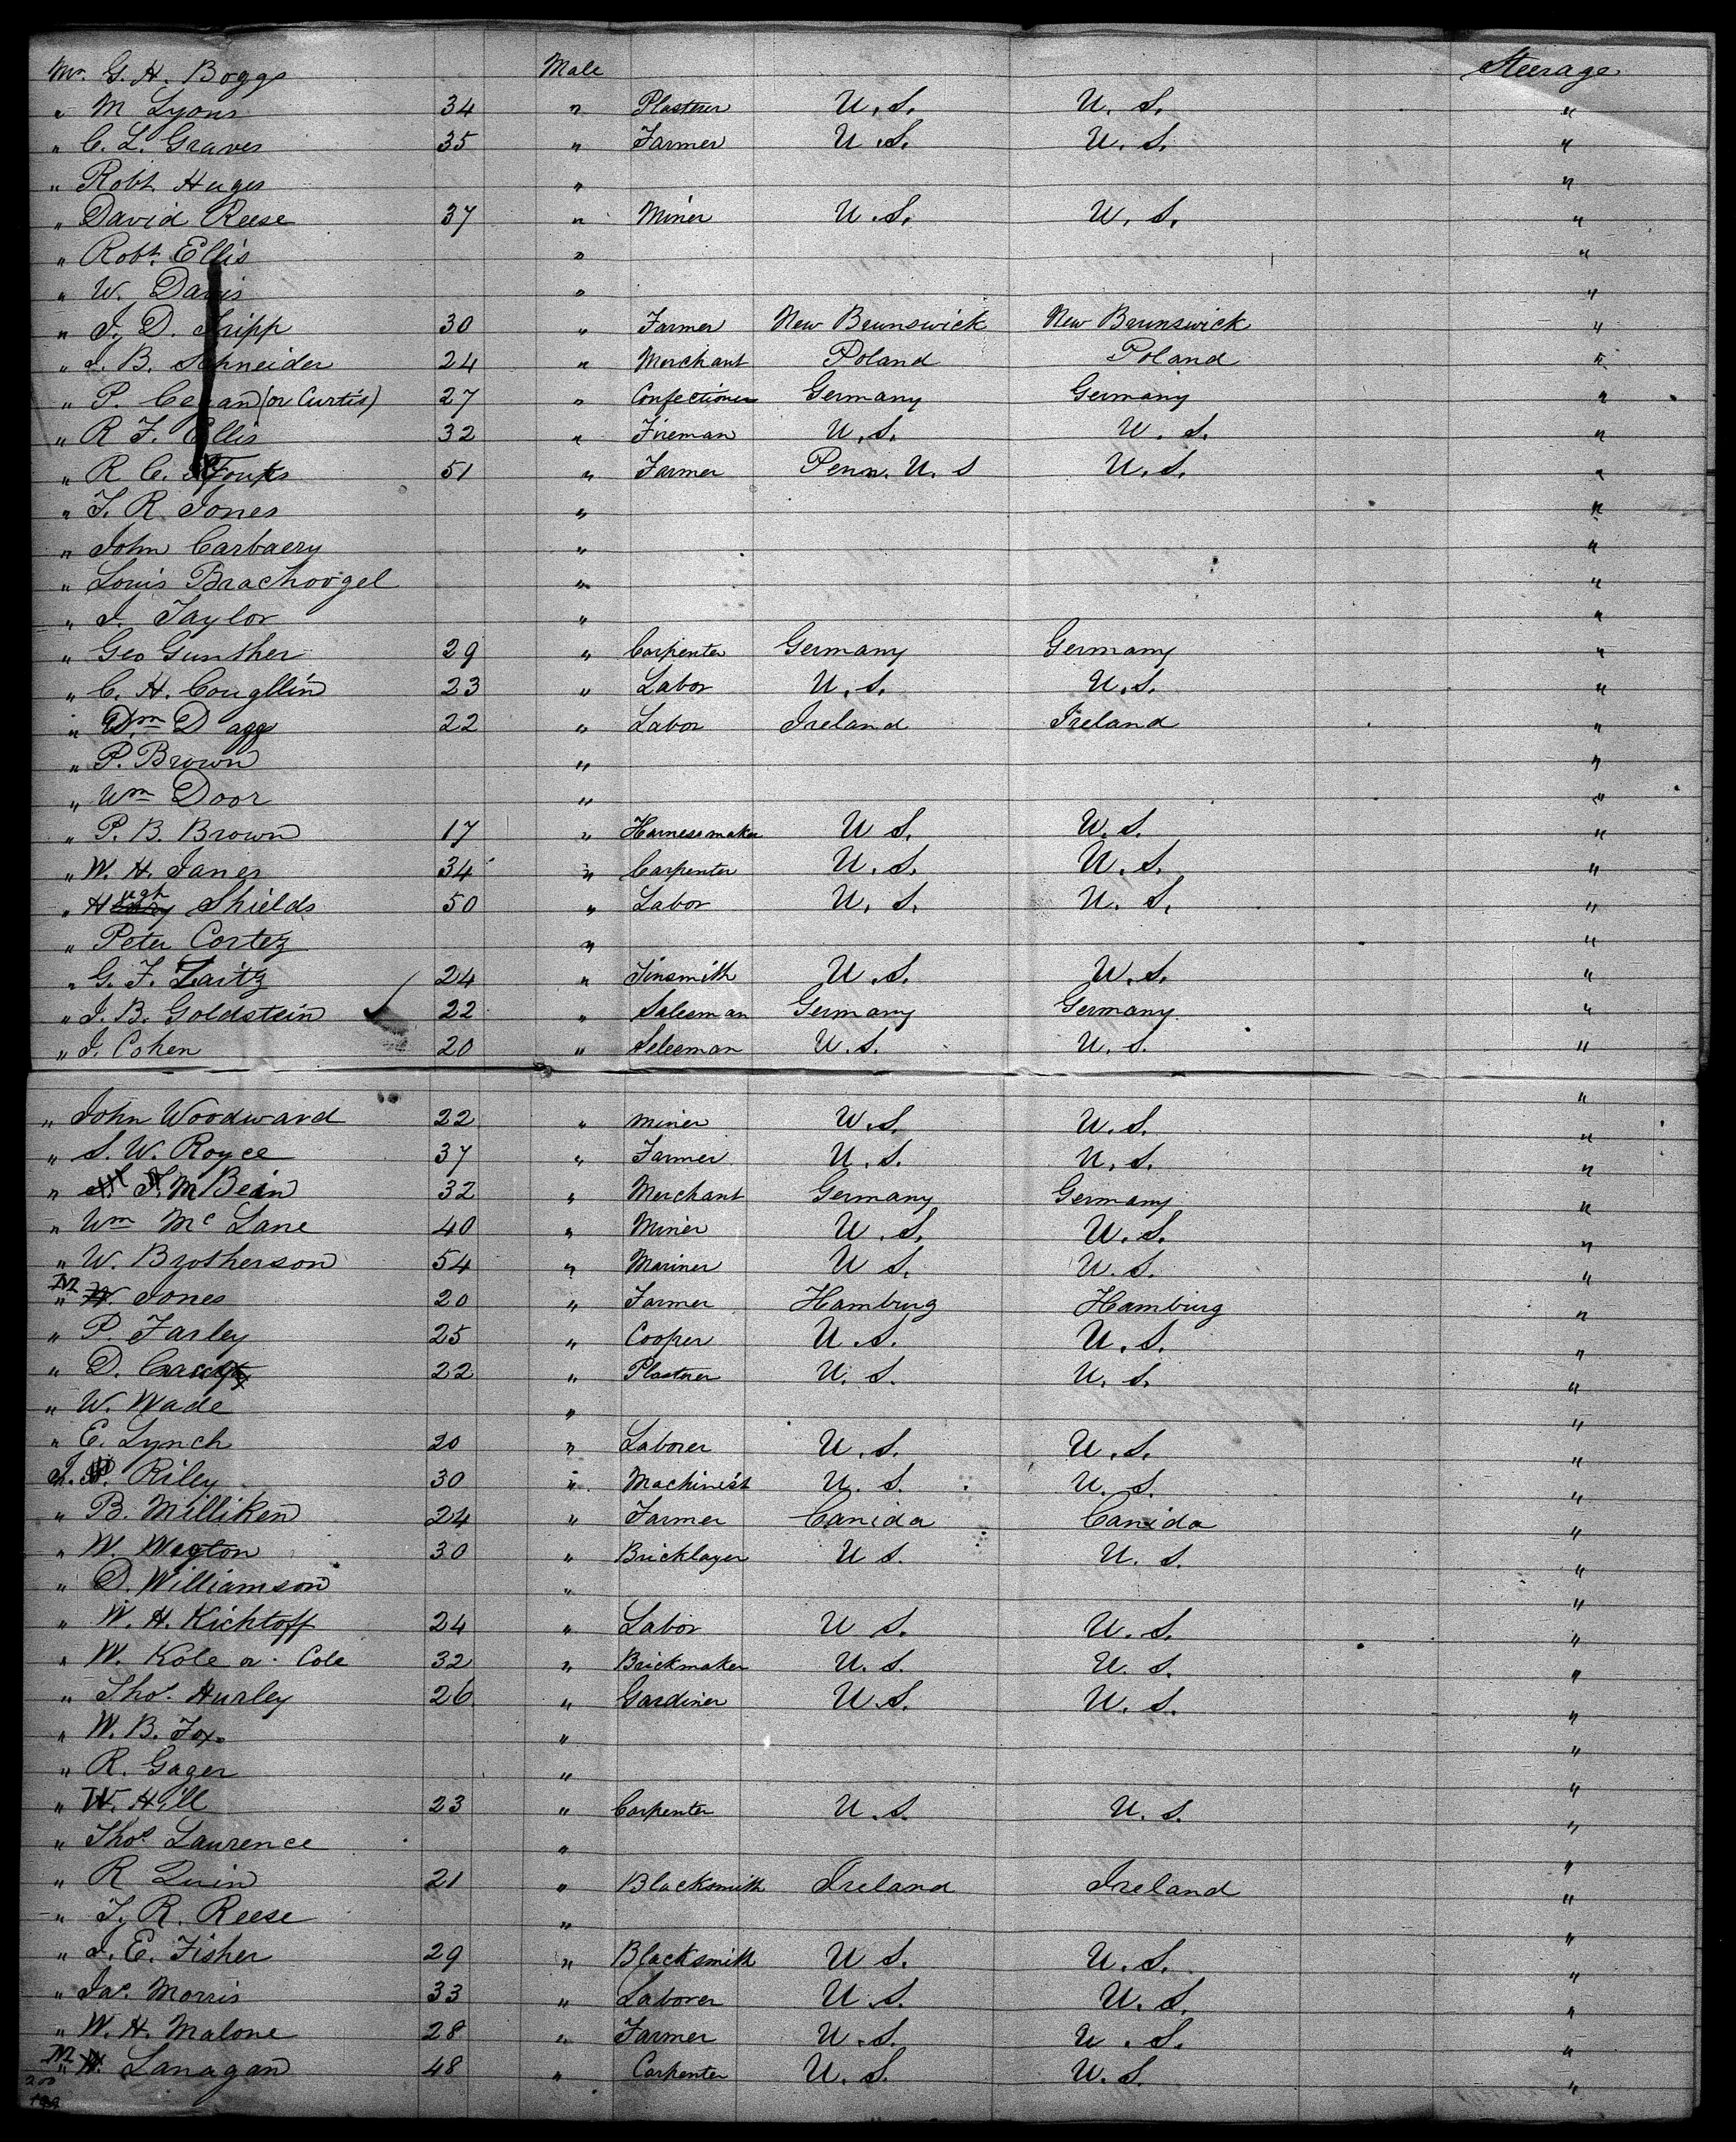 Mr. G. H. Boggs Male Steerage
" M Lyons 34 " Plasterer U. S. U. S. "
" C. L. Graves 35 " Farmer U. S. U. S. "
" Robt. Huges " "
" David Reese 37 " Miner U. S. U. S. "
" Robt. Ellis " "
" W. Davis " "
" J. D. Tripp 30 " Farmer New Brunswick New Brunswick "
" J. B. Schneider 24 " Merchant Poland Poland "
" P. (or Curtis) 27 " Confectioner Germany Germany "
" R F. Ellis 32 " Fireman U. S. U. S. "
" R C. 51 " Farmer Penn. U. S U. S. "
" T. R Jones " "
" John Carbaery " "
" Louis Brachvogel " "
" J. Taylor " "
" Geo Gunther 29 " Carpenter Germany Germany "
" C. H. Cougllin 23 " Labor U. S. U. S. "
" D agg 22 " Labor Ireland Ireland "
" P. Brown " "
" Wm Door " "
" P. B. Brown 17 " Harnessmaker U S. U. S. "
" W. H. Janes 34 " Carpenter U. S. U. S. "
" Hugh Shields 50 " Labor U. S. U. S. "
" Peter Cortez " "
" G. F. Laitz 24 " Tinsmith U. S. U. S. "
" J. B. Goldstein ✓ 22 " Salesman Germany Germany "
" J. Cohen 20 " Selesman U. S. U. S. "
"
" John Woodward 22 " Miner U. S. U. S. "
" S. W. Royce 37 " Farmer U. S. U. S. "
" M Bein 32 " Merchant Germany Germany "
" Wm Mc Lane 40 " Miner U. S. U. S. "
" W. Brotherson 54 " Mariner U S. U. S. "
" M Jones 20 " Farmer Hamburg Hamburg "
" P. Farley 25 " Cooper U. S. U. S. "
" D. 22 " Plasterer U. S. U. S. "
" W. Wade " "
" E. Lynch 20 " Laborer U. S. U. S. "
J. Riley 30 " Machinist U. S. U. S. "
" B. Milliken 24 " Farmer Canida Canida "
" W. Wegton 30 " Bricklayer U S. U. S. "
" D. Williamson " "
" W. H. Kichtoff 24 " Labor U S. U. S. "
" W. Kole or Cole 32 " Brickmaker U. S. U. S. "
" Thos. Hurley 26 " Gardiner U. S. U. S. "
" W. B. Fox " "
" R. Gager " "
" W. Hill 23 " Carpenter U. S. U. S. "
" Thos. Laurence " "
" R Quin 21 " Blacksmith Ireland Ireland "
" T. R. Reese " "
" J. E. Fisher 29 " Blacksmith U S. U. S. "
" Jas. Morris 33 " Laborer U. S. U. S. "
" W. H. Malone 28 " Farmer U. S. U. S. "
" M Lanagan 48 " Carpenter U. S. U. S. "
200